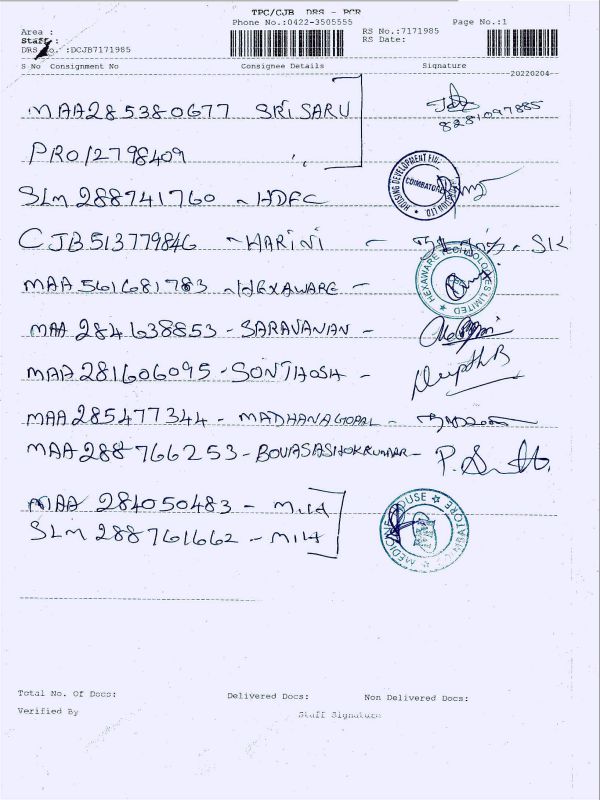 TPC/CJB DRS - PCR
Phone No.:0422-3505555 Page No.:1
Area :
Staff : RS No.:7171985
DRS No. :DCJB7171985 RS Date:
S No Consignment No Consignee Details Signature
20220204
MAA285380677 SRI SARU
8281097885
PRO12798409
HOUSING DEVELOPMENT FINANCE CORPORATION LTD. COIMBATORE
SLM 288741760 - HDFC
CJB513779846 - HARINI - SK
HEXAWARE TECHNOLOGIES LIMITED
MAA 561681783 - HEXAWARE -
MAA 284638853 - SARAVANAN -
MAA 281606095 - SONTHOSH - Deepthi B
MAA 285477344 - MADHANAGOPAL -
MAA 288766253 - BOVASASHOKKUMAR -
MAA 284050483 - M.H
SLM 288761662 - MIH
MEDICINE HOUSE COIMBATORE
Total No. Of Docs: Delivered Docs: Non Delivered Docs:
Verified By Staff Signature